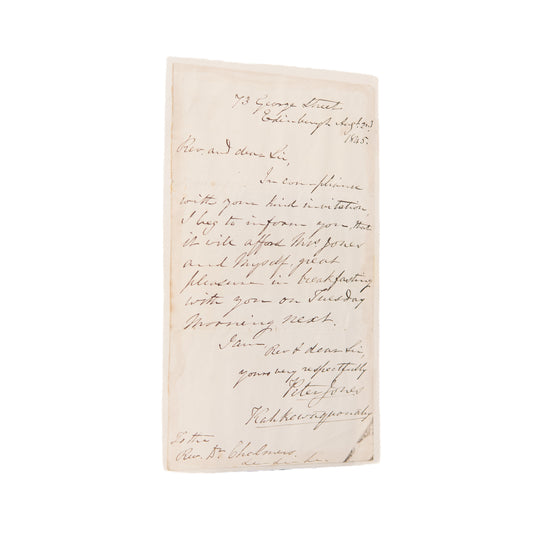 73 George Street
Edinburgh Augt 2nd
1845.
Rev. and dear Sir,
In compliance
with your kind invitation,
I beg to inform you, that
it will afford Mrs Jones
and Myself, great
pleasure in breakfasting
with you on Tuesday
Morning next.
I am
Rev & dear Sir,
yours very respectfully
Peter Jones
Kahkewaquonaby
To the
Rev. Dr Chalmers.